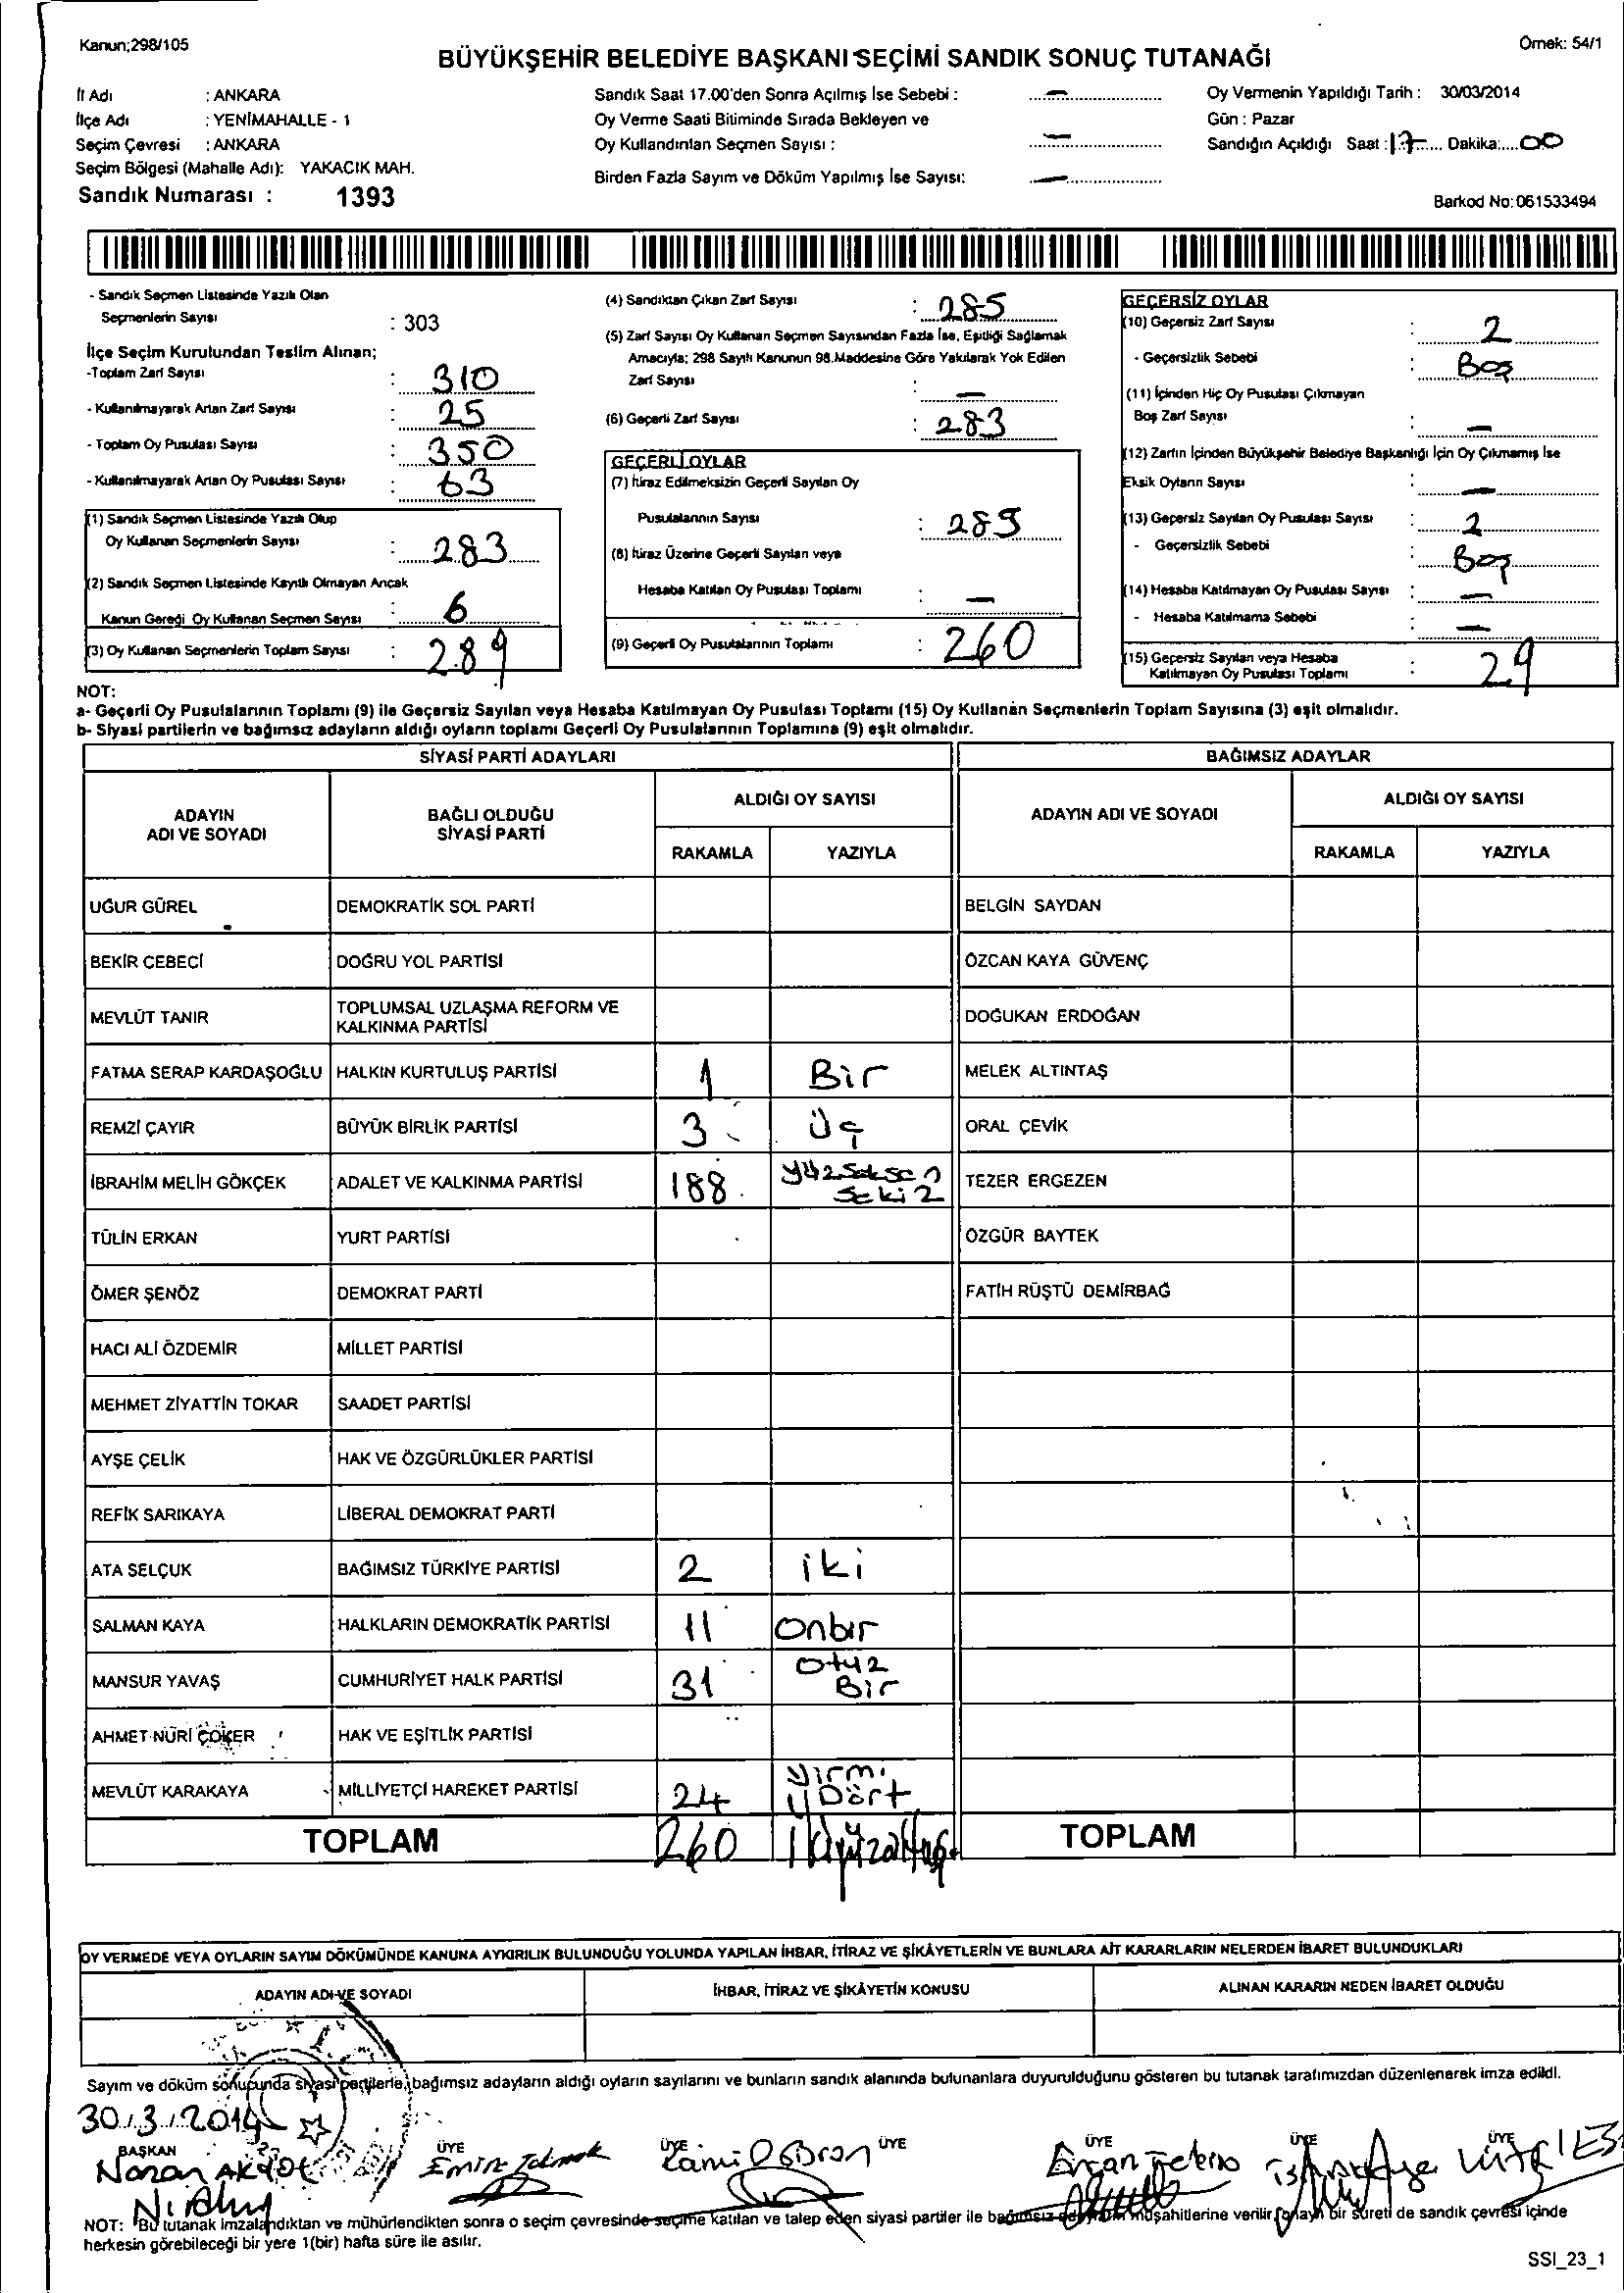 Kanun;298/105
Örnek: 54/1
BÜYÜKŞEHİR BELEDİYE BAŞKANI SEÇİMİ SANDIK SONUÇ TUTANAĞI
İl Adı : ANKARA
İlçe Adı : YENİMAHALLE - 1
Seçim Çevresi : ANKARA
Seçim Bölgesi (Mahalle Adı): YAKACIK MAH.
Sandık Numarası : 1393
Sandık Saat 17.00'den Sonra Açılmış İse Sebebi : —
Oy Verme Saati Bitiminde Sırada Bekleyen ve
Oy Kullandırılan Seçmen Sayısı : —
Birden Fazla Sayım ve Döküm Yapılmış İse Sayısı: —
Oy Vermenin Yapıldığı Tarih : 30/03/2014
Gün : Pazar
Sandığın Açıldığı Saat : 17 Dakika: 00
Barkod No:061533494
- Sandık Seçmen Listesinde Yazılı Olan
Seçmenlerin Sayısı : 303
İlçe Seçim Kurulundan Teslim Alınan;
-Toplam Zarf Sayısı : 310
- Kullanılmayarak Artan Zarf Sayısı : 25
- Toplam Oy Pusulası Sayısı : 350
- Kullanılmayarak Artan Oy Pusulası Sayısı : 63
(1) Sandık Seçmen Listesinde Yazılı Olup
Oy Kullanan Seçmenlerin Sayısı : 283
(2) Sandık Seçmen Listesinde Kayıtlı Olmayan Ancak
Kanun Gereği Oy Kullanan Seçmen Sayısı : 6
(3) Oy Kullanan Seçmenlerin Toplam Sayısı : 289
(4) Sandıktan Çıkan Zarf Sayısı : 285
(5) Zarf Sayısı Oy Kullanan Seçmen Sayısından Fazla İse, Eşitliği Sağlamak
Amacıyla; 298 Sayılı Kanunun 98.Maddesine Göre Yakılarak Yok Edilen
Zarf Sayısı : —
(6) Geçerli Zarf Sayısı : 283
GEÇERLİ OYLAR
(7) İtiraz Edilmeksizin Geçerli Sayılan Oy
Pusulalarının Sayısı : 285
(8) İtiraz Üzerine Geçerli Sayılan veya
Hesaba Katılan Oy Pusulası Toplamı : —
(9) Geçerli Oy Pusulalarının Toplamı : 260
GEÇERSİZ OYLAR
(10) Geçersiz Zarf Sayısı : 2
- Geçersizlik Sebebi : Boş
(11) İçinden Hiç Oy Pusulası Çıkmayan
Boş Zarf Sayısı : —
(12) Zarfın İçinden Büyükşehir Belediye Başkanlığı İçin Oy Çıkmamış İse
Eksik Oyların Sayısı : —
(13) Geçersiz Sayılan Oy Pusulası Sayısı : 2
- Geçersizlik Sebebi : Boş
(14) Hesaba Katılmayan Oy Pusulası Sayısı : —
- Hesaba Katılmama Sebebi : —
(15) Geçersiz Sayılan veya Hesaba
Katılmayan Oy Pusulası Toplamı : 29
NOT:
a- Geçerli Oy Pusulalarının Toplamı (9) ile Geçersiz Sayılan veya Hesaba Katılmayan Oy Pusulası Toplamı (15) Oy Kullanan Seçmenlerin Toplam Sayısına (3) eşit olmalıdır.
b- Siyasi partilerin ve bağımsız adayların aldığı oyların toplamı Geçerli Oy Pusulalarının Toplamına (9) eşit olmalıdır.
SİYASİ PARTİ ADAYLARI
BAĞIMSIZ ADAYLAR
ADAYIN ADI VE SOYADI
BAĞLI OLDUĞU SİYASİ PARTİ
ALDIĞI OY SAYISI
RAKAMLA YAZIYLA
ADAYIN ADI VE SOYADI
ALDIĞI OY SAYISI
RAKAMLA YAZIYLA
UĞUR GÜREL DEMOKRATİK SOL PARTİ BELGİN SAYDAN
BEKİR CEBECİ DOĞRU YOL PARTİSİ ÖZCAN KAYA GÜVENÇ
MEVLÜT TANIR TOPLUMSAL UZLAŞMA REFORM VE KALKINMA PARTİSİ DOĞUKAN ERDOĞAN
FATMA SERAP KARDAŞOĞLU HALKIN KURTULUŞ PARTİSİ 1 Bir MELEK ALTINTAŞ
REMZİ ÇAYIR BÜYÜK BİRLİK PARTİSİ 3 Üç ORAL ÇEVİK
İBRAHİM MELİH GÖKÇEK ADALET VE KALKINMA PARTİSİ 188 yüzseksen sekiz TEZER ERGEZEN
TÜLİN ERKAN YURT PARTİSİ ÖZGÜR BAYTEK
ÖMER ŞENÖZ DEMOKRAT PARTİ FATİH RÜŞTÜ DEMİRBAĞ
HACI ALİ ÖZDEMİR MİLLET PARTİSİ
MEHMET ZİYATTİN TOKAR SAADET PARTİSİ
AYŞE ÇELİK HAK VE ÖZGÜRLÜKLER PARTİSİ
REFİK SARIKAYA LİBERAL DEMOKRAT PARTİ
ATA SELÇUK BAĞIMSIZ TÜRKİYE PARTİSİ 2 iki
SALMAN KAYA HALKLARIN DEMOKRATİK PARTİSİ 11 Onbir
MANSUR YAVAŞ CUMHURİYET HALK PARTİSİ 31 Otuz Bir
AHMET NURİ ÇOKER HAK VE EŞİTLİK PARTİSİ
MEVLÜT KARAKAYA MİLLİYETÇİ HAREKET PARTİSİ 24 Yirmi Dört
TOPLAM 260 TOPLAM
OY VERMEDE VEYA OYLARIN SAYIM DÖKÜMÜNDE KANUNA AYKIRILIK BULUNDUĞU YOLUNDA YAPILAN İHBAR, İTİRAZ VE ŞİKÂYETLERİN VE BUNLARA AİT KARARLARIN NELERDEN İBARET BULUNDUKLARI
ADAYIN ADI VE SOYADI
İHBAR, İTİRAZ VE ŞİKÂYETİN KONUSU
ALINAN KARARIN NEDEN İBARET OLDUĞU
Sayım ve döküm sonucunda siyasi partilerle, bağımsız adayların aldığı oyların sayılarını ve bunların sandık alanında bulunanlara duyurulduğunu gösteren bu tutanak tarafımızdan düzenlenerek imza edildi.
30.3.2014
BAŞKAN ÜYE ÜYE ÜYE ÜYE ÜYE ÜYE
NOT: Bu tutanak imzalandıktan ve mühürlendikten sonra o seçim çevresinde seçime katılan ve talep eden siyasi partiler ile bağımsız müşahitlerine verilir, onaylı bir sureti de sandık çevresi içinde
herkesin görebileceği bir yere 1(bir) hafta süre ile asılır.
SSI_23_1